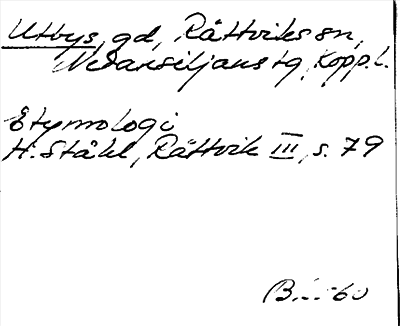 Utbys, gd, Rättviks sn,
Nedansiljans tg, Kopp.l.
Etymologi
H. Ståhl, Rättvik III, s. 79